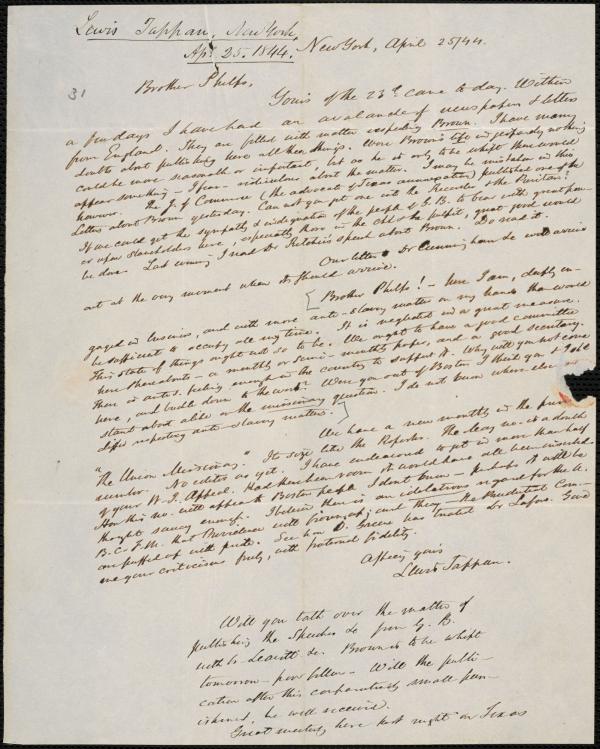 Lewis Tappan, New York,
Ap. 25. 1844. New York, April 25/44.
31
Brother Phelps,
Yours of the 23d came to day. Within
a few days I have had an avalanche of newspapers & letters
from England. They are filled with matter respecting Brown. I have many
doubts about publishing here all these things. Were Brown's life in jeopardy nothing
could be more seasonable or important, but as he is only to be whipt there would
appear something - I fear - ridiculous about the matter. I may be mistaken in this
however. The J. of Commerce (the advocate of Texas annexation) published one of the
Letters about Brown yesterday. Can not you get one into the Recorder & the Puritan?
If we could get the sympathy & indignation of the people of G.B. to bear with great power
upon slaveholders here, especially those in the chh & the pulpit, great good would
be done. Last evening I read Dr Ritchie's speech about Brown. Do read it.
Our letter to Dr Cunningham &c will arrive
out at the very moment when it should arrive.
[Brother Phelps! - here I am, deeply en-
gaged in business, and with more anti-slavery matter on my hands than would
be sufficient to occupy all my time. It is neglected in a great measure.
This state of things ought not so to be. We ought to have a good committee
here thereabouts - a monthly or semi-monthly paper, and a good secretary.
There is anti s. feeling enough in the country to support it. Why will you not come
here, and buckle down to the work? Were you out of Boston I think you & I
stand about alike on the missionary question. I do not know where else
differ respecting anti-slavery matters.]
We have a new monthly in the press
"The Union Missionary." Its size like the Reporter. The No. is a double
number. No editor as yet. I have endeavored to get in more than half
of your W. I. Appeal. Had there been room it would have all been inserted.
How this no. will appear to Boston people I don't know - Perhaps it will be
thought saucy enough. I believe there is an idolatrous regard for the A.
B. C. F. M. that Providence will frown upon; and they - the Prudential Com-
are puffed up with pride. See how D. Greene has treated Dr Lafon. Give
me your criticisms freely, with fraternal fidelity.
Affecy yours
Lewis Tappan.
Will you talk over the matter of
publishing the Speeches &c from G. B.
with Br Leavitt &c. Brown is to be whipt
tomorrow - poor fellow - Will the publi-
cation after this comparatively small pun-
ishment, be well received.
Great meeting here last night on Texas